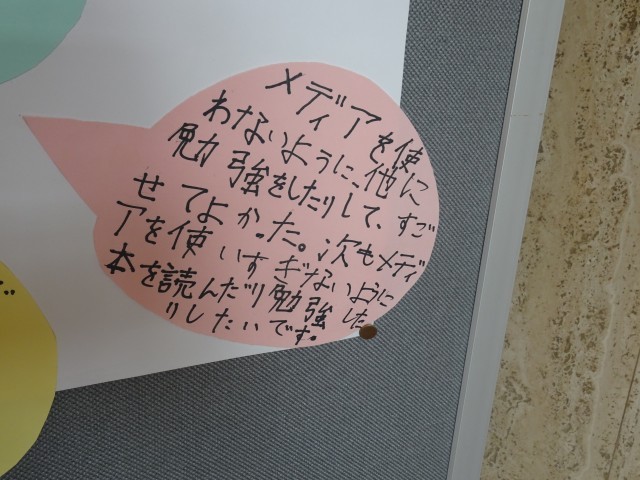 メディアを使
わないように、他に
勉強をしたりして、すご
せてよかった。次もメディ
アを使いすぎないように
本を読んだり勉強した
りしたいです。